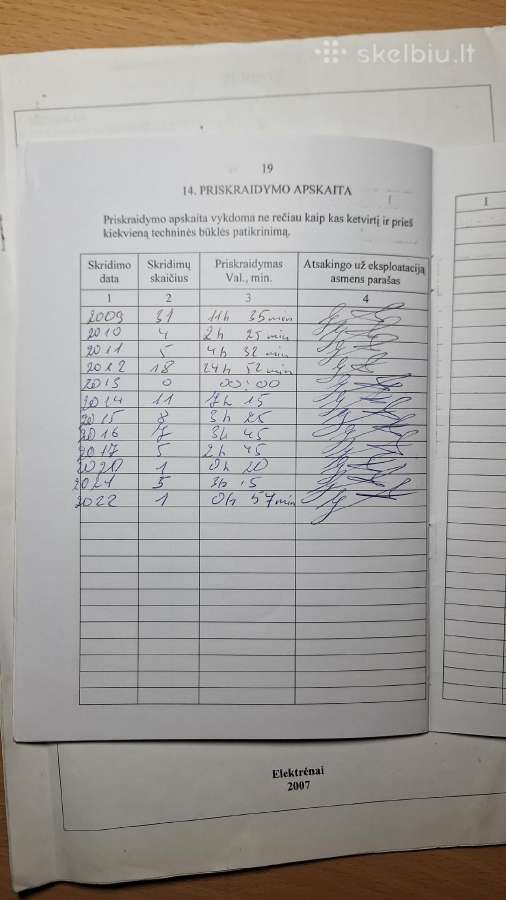 skelbiu.lt
19
14. PRISKRAIDYMO APSKAITA
Priskraidymo apskaita vykdoma ne rečiau kaip kas ketvirtį ir prieš
kiekvieną techninės būklės patikrinimą.
Skridimo data Skridimų skaičius Priskraidymas Val., min. Atsakingo už eksploataciją asmens parašas
1 2 3 4
2009 31 11h 35 min
2010 4 2h 25 min
2011 5 4h 32 min
2012 18 24h 52 min
2013 0 00:00
2014 11 7h 15
2015 8 3h 25
2016 7 3h 45
2017 5 2h 45
2020 1 0h 20
2021 5 3h 15
2022 1 0h 57 min
1
Elektrėnai
2007